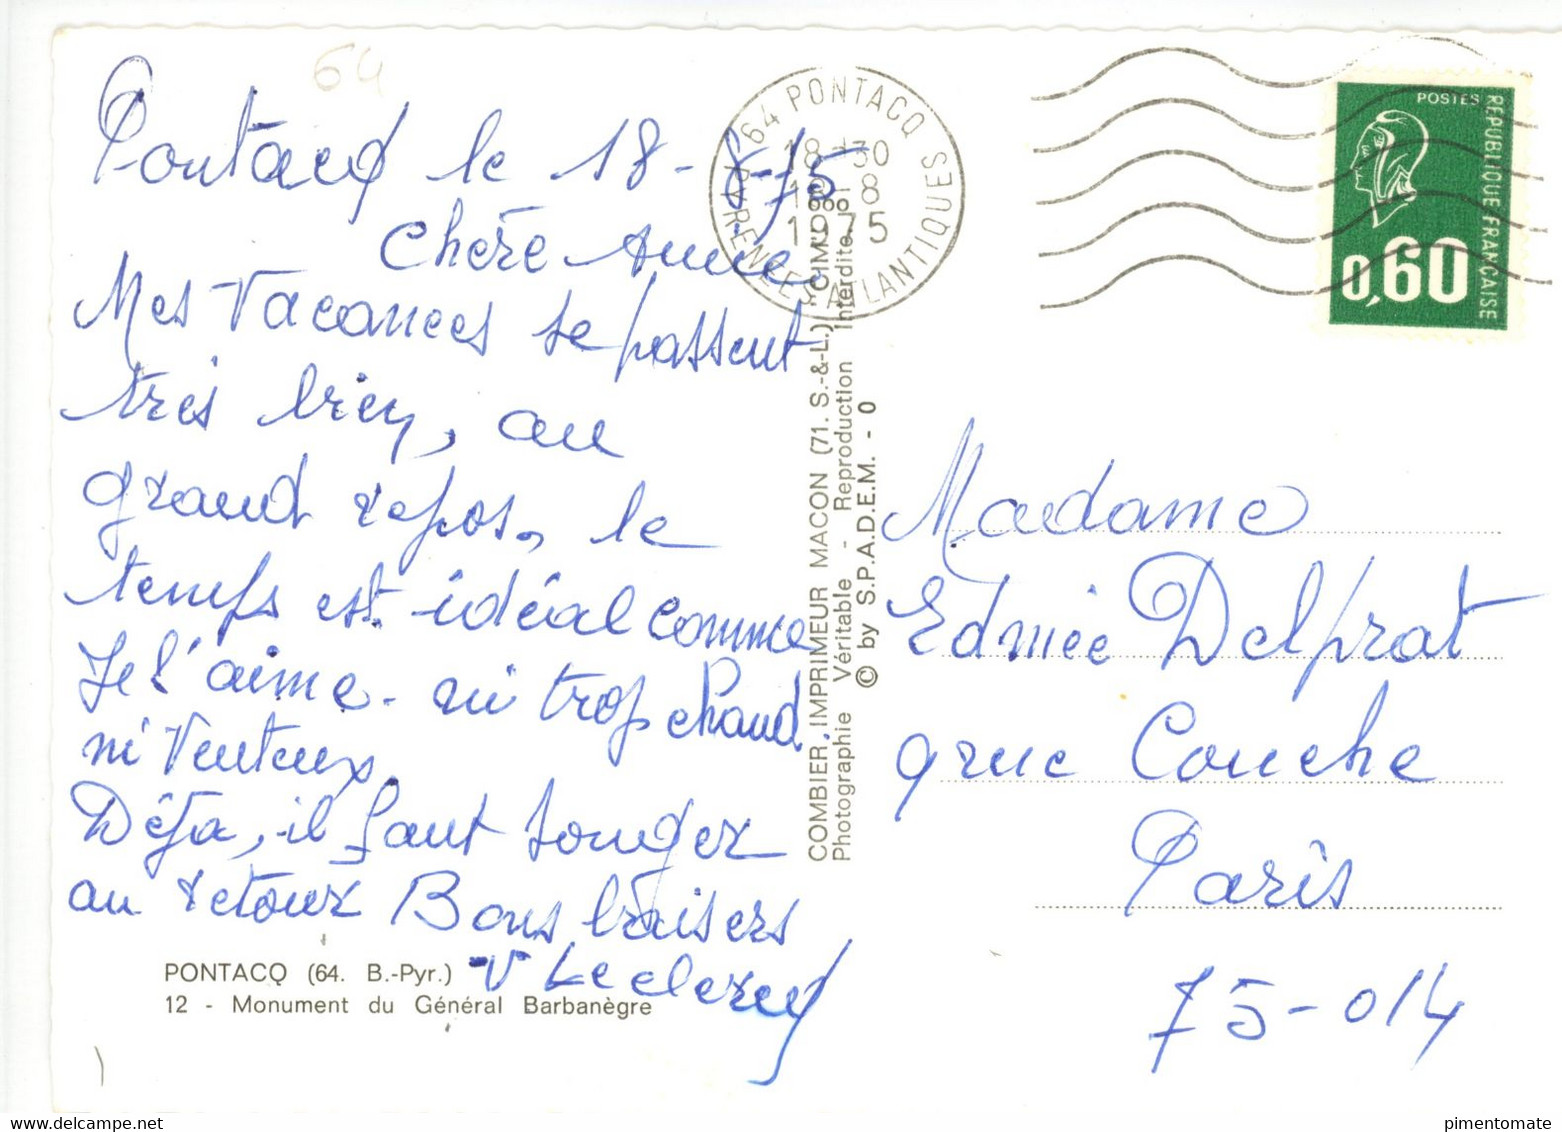 64
Pontacq le 18-8-75
Chère Amie
Mes Vacances se passent
très bien, au
grand repos, le
temps est idéal comme
Je l'aime - ni trop chaud
ni Venteux.
Déja, il faut songer
au retour Bons baisers
V Leclercq
PONTACQ (64. B.-Pyr.)
12 - Monument du Général Barbanègre
64 PONTACQ
18 H 30
18 - 8
1975
PYRENEES ATLANTIQUES
COMBIER IMPRIMEUR MACON (71. S.-&-L.) "CIM"
Photographie Véritable - Reproduction Interdite.
© by S.P.A.D.E.M. - 0
POSTES
REPUBLIQUE FRANÇAISE
0,60
Madame
Edmée Delprat
9 rue Couche
Paris
75-014
pimentomate